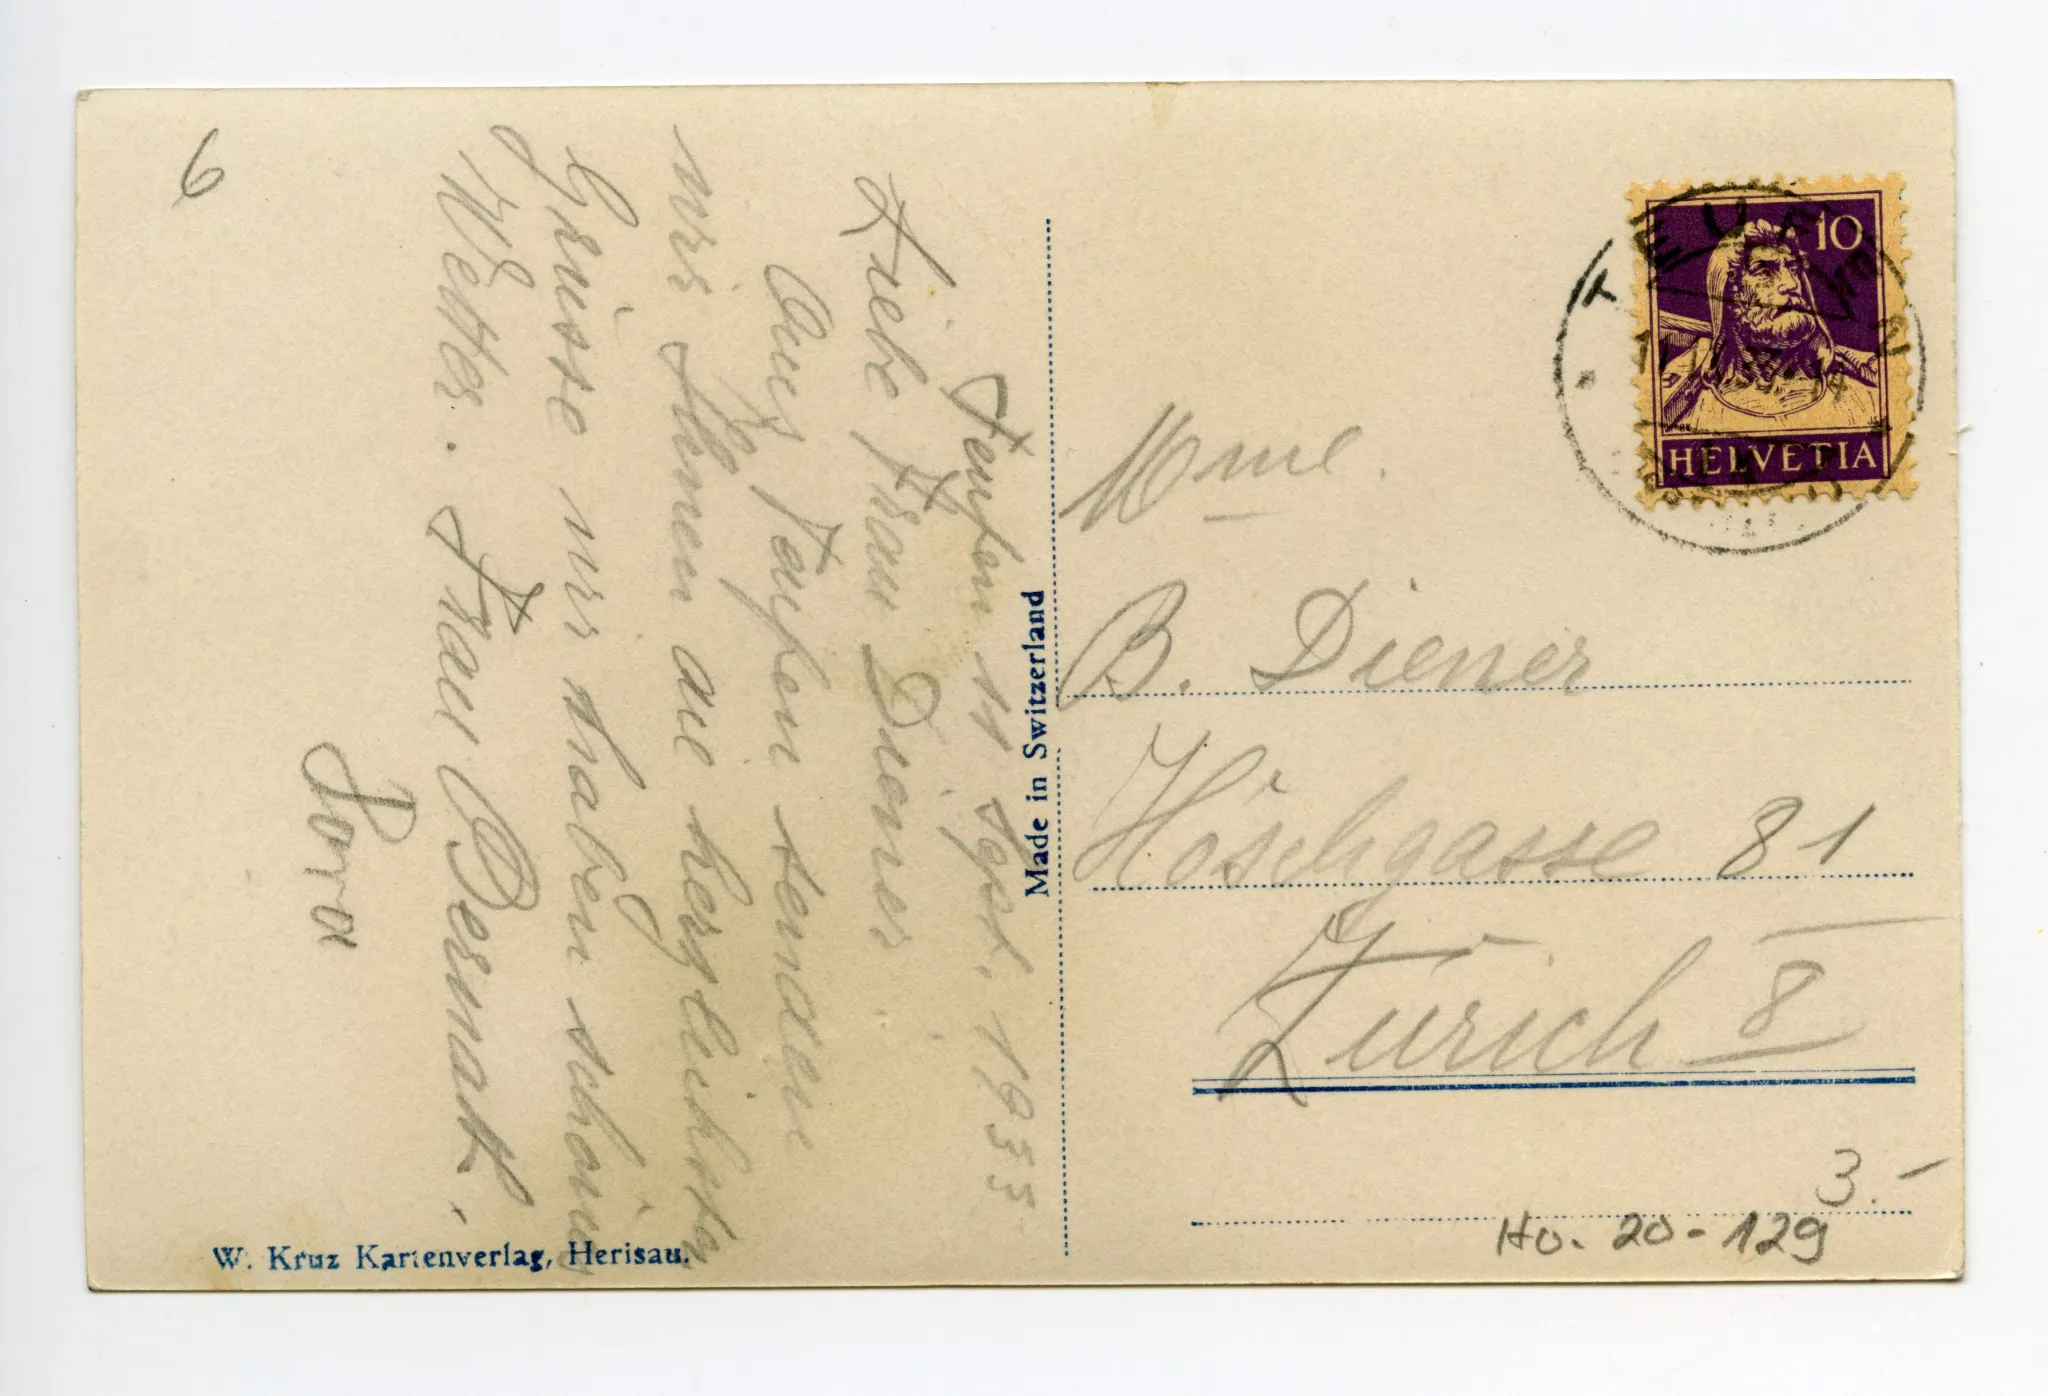 Teufen 11 Sept. 1933
Liebe Frau Diener.
Aus Teufen senden
wir Ihnen die herzlichsten
Grüsse wir haben schönes
Wetter. Frau Bermat,
Dora
6
Made in Switzerland
W. Kruz Kartenverlag, Herisau.
TEUFEN
10
HELVETIA
Mme.
B. Diener
Höschgasse 81
Zürich 8
3.-
Ho. 20-129